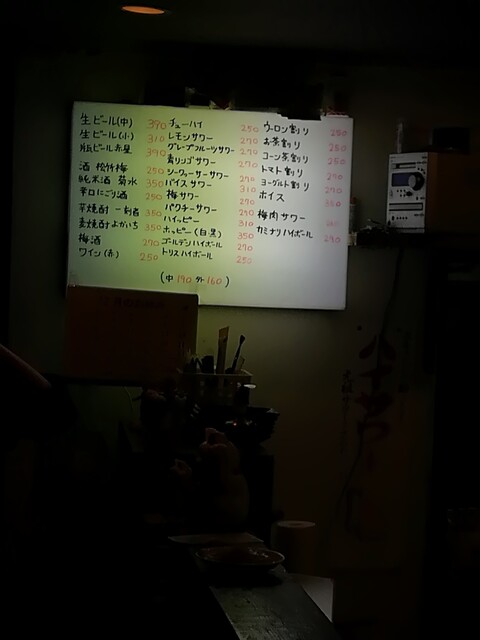 生ビール(中) 390
生ビール(小) 310
瓶ビール赤星 390
酒 松竹梅 250
純米酒 菊水 350
辛口にごり酒 250
芋焼酎 一刻者 350
麦焼酎よかいち 350
梅酒 270
ワイン(赤) 250
チューハイ 250
レモンサワー 270
グレープフルーツサワー 270
青リンゴサワー 270
シークワーサーサワー
バイスサワー
梅サワー 270
パクチーサワー 290
ハイッピー 310
ホッピー(白黒) 350
ゴールデンハイボール 270
トリスハイボール 250
(中190 外160)
ウーロン割り 250
お茶割り 250
コーン茶割り 250
トマト割り 290
ヨーグルト割り 270
ホイス 350
梅肉サワー
カミナリハイボール 290